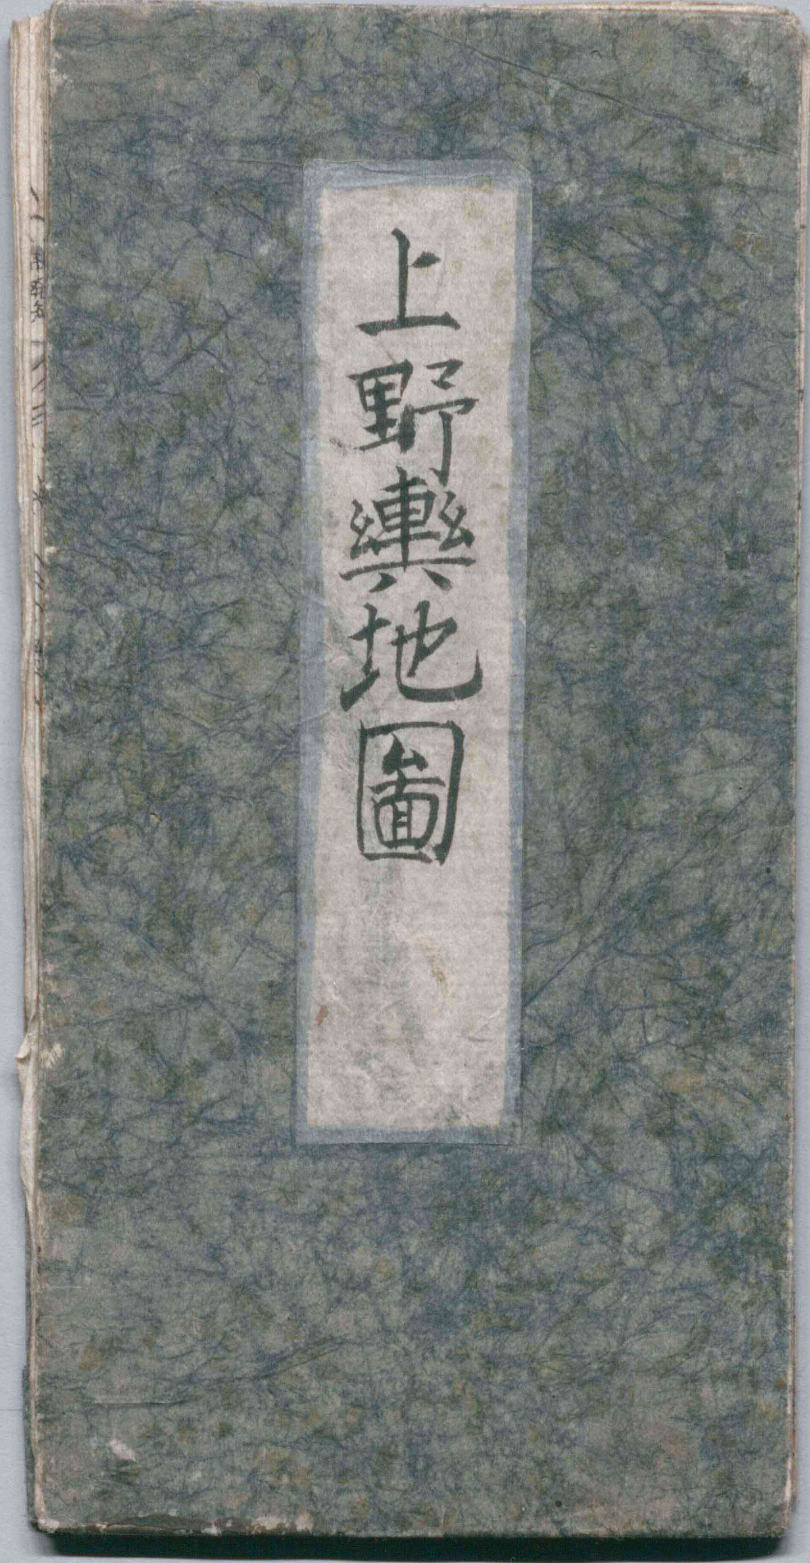 上野輿地圖